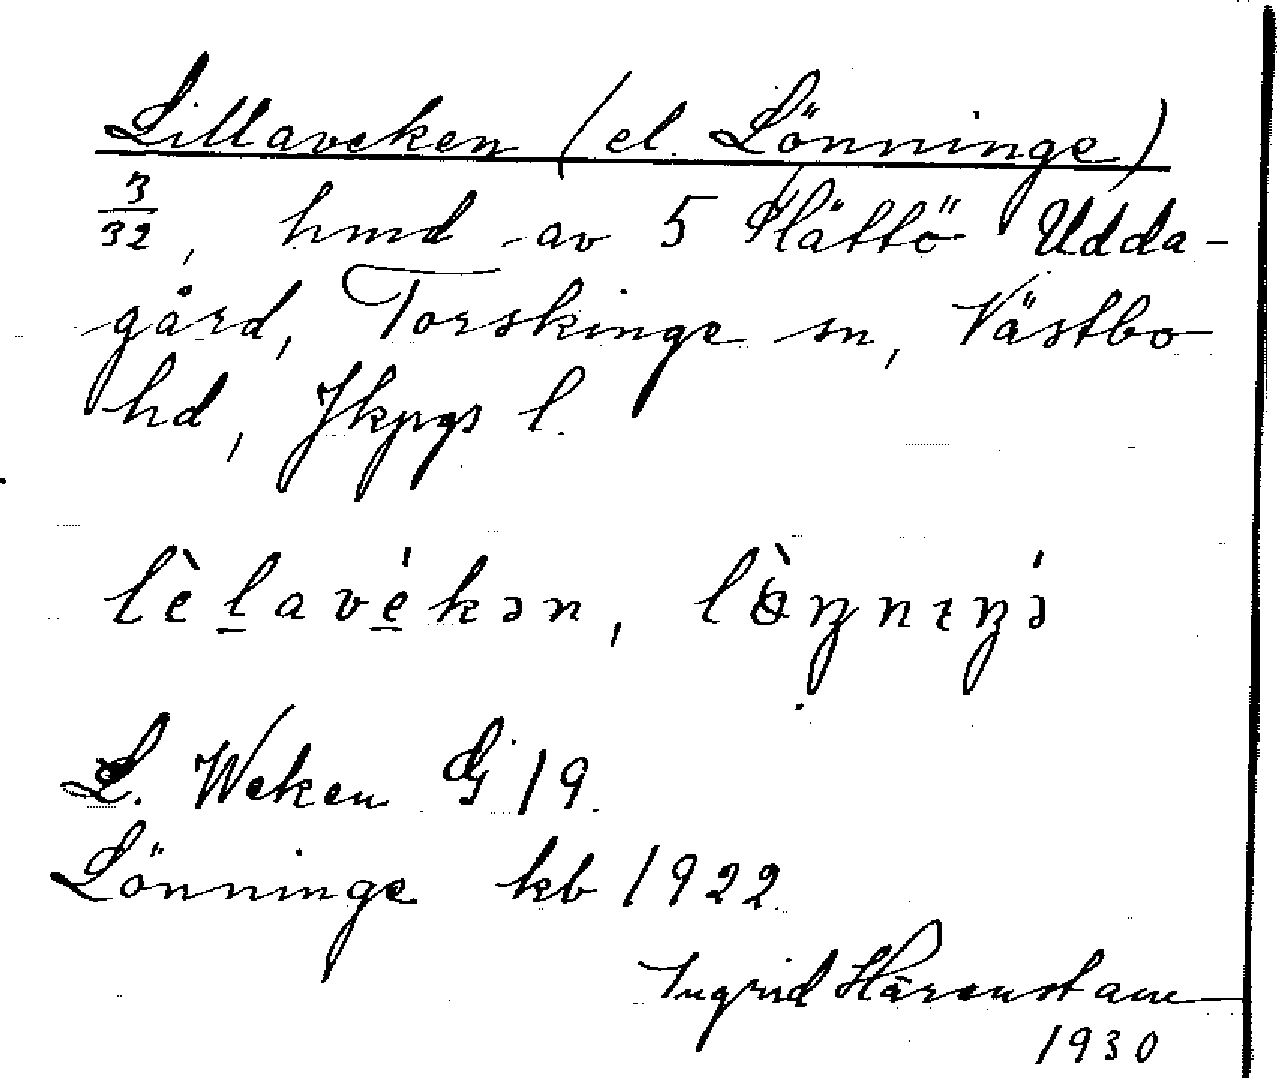 Lillaveken (el. Lönninge)
3/32, hmd av 5 Hättö Udda-
gård, Torskinge sn, Västbo
hd, Jkpgs l.
lèlavékən, lö̀ŋnıŋə́
L. Weken G 19.
Lönninge kb 1922
Ingrid Härenstam
1930